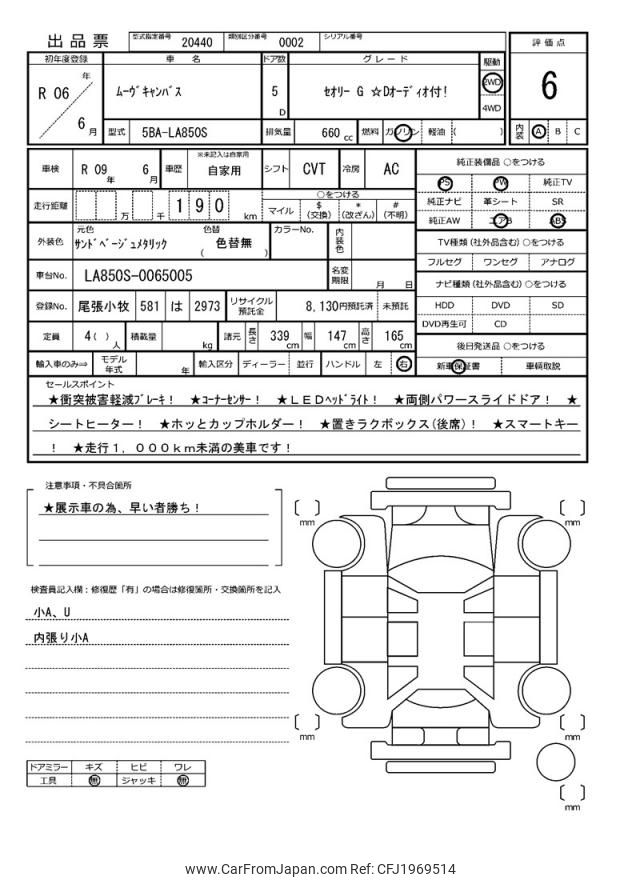 出品票 型式指定番号 20440 類別区分番号 0002 シリアル番号
初年度登録 車名 ドア数 グレード 駆動 評価点
R 06 年 6 月 ムーヴキャンバス 5 D セオリー G ☆Dオーディオ付! 2WD 4WD 6
型式 5BA-LA850S 排気量 660 cc 燃料 ガソリン 軽油 ( ) 内装 A B C
車検 R 09 年 6 月 車歴 ※未記入は自家用 自家用 シフト CVT 冷房 AC
純正装備品 ○をつける
PS PW 純正TV
純正ナビ 革シート SR
純正AW エアB ABS
走行距離 万 千 1 9 0 km
○をつける
マイル $(交換) *(改ざん) #(不明)
外装色 元色 サンドベージュメタリック 色替 ( 色替無 ) カラーNo. 内装色
TV種類(社外品含む)○をつける
フルセグ ワンセグ アナログ
車台No. LA850S-0065005 名変期限 月 日
ナビ種類(社外品含む)○をつける
HDD DVD SD
DVD再生可 CD
登録No. 尾張小牧 581 は 2973 リサイクル預託金 8,130円預託済 未預託
定員 4( ) 人 積載量 kg 諸元 長さ 339 cm 幅 147 cm 高さ 165 cm
後日発送品 ○をつける
新車保証書 車輌取説
輸入車のみ⇒ モデル年式 年 輸入区分 ディーラー 並行 ハンドル 左 右
セールスポイント
★衝突被害軽減ブレーキ! ★コーナーセンサー! ★LEDヘッドライト! ★両側パワースライドドア! ★
シートヒーター! ★ホッとカップホルダー! ★置きラクボックス(後席)! ★スマートキー
! ★走行1,000km未満の美車です!
注意事項・不具合箇所
★展示車の為、早い者勝ち!
検査員記入欄:修復歴「有」の場合は修復箇所・交換箇所を記入
小A、U
内張り小A
ドアミラー キズ ヒビ ワレ
工具 無 ジャッキ 無
mm
mm
mm
mm
mm
www.CarFromJapan.com Ref: CFJ1969514